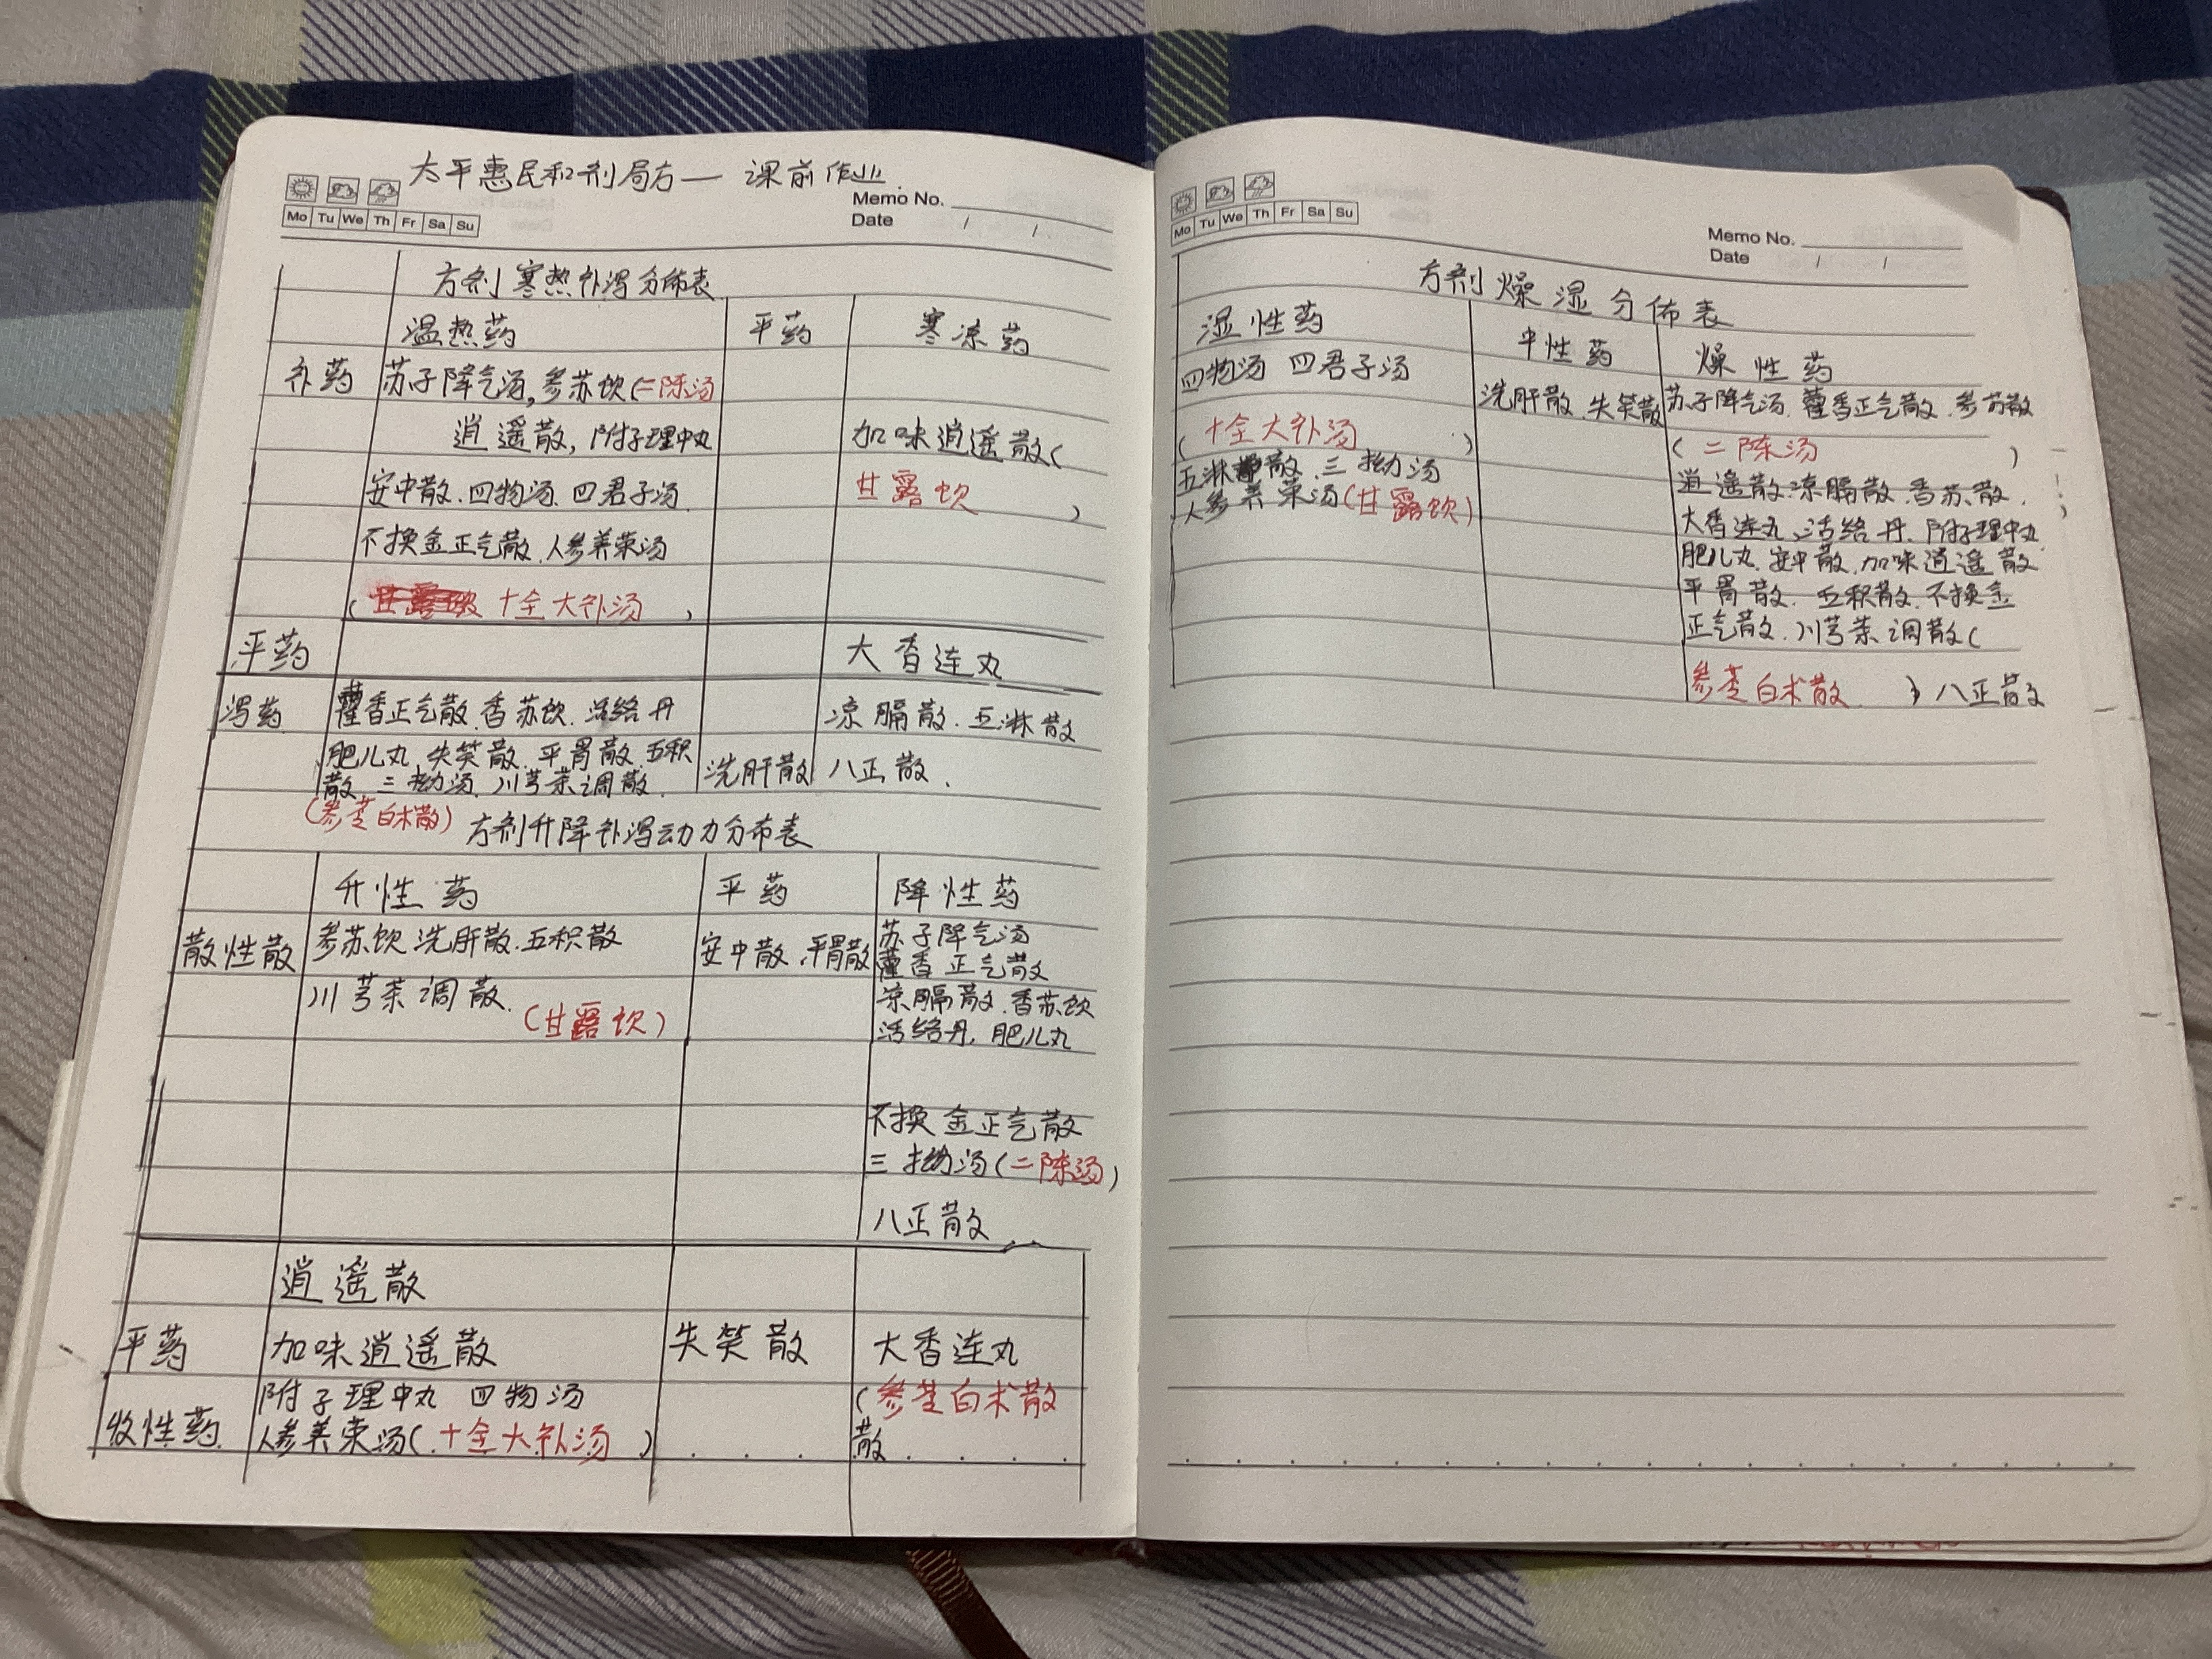 太平惠民和剂局方一 课前作业.
Mo Tu We Th Fr Sa Su
Memo No.
Date / /
方剂寒热补泻分佈表
温热药 平药 寒凉药
补药 苏子降气汤,参苏饮(二陈汤
逍遥散,附子理中丸 加味逍遥散(
安中散.四物汤.四君子汤. 甘露饮 )
不换金正气散.人参养荣汤
( 十全大补汤 )
平药 大香连丸
泻药 藿香正气散.香苏饮.活络丹 凉膈散.五淋散
肥儿丸,失笑散.平胃散.五积 洗肝散 八正散.
散.三拗汤.川芎茶调散.
(参苓白术散)
方剂升降补泻动力分布表
升性药 平药 降性药
散性散 参苏饮.洗肝散.五积散 安中散.平胃散 苏子降气汤
藿香正气散
川芎茶调散. 凉膈散.香苏饮
(甘露饮) 活络丹,肥儿丸
不换金正气散
三拗汤(二陈汤)
八正散
逍遥散
平药 加味逍遥散 失笑散 大香连丸
附子理中丸 四物汤 (参苓白术散
收性药 人参养荣汤(十全大补汤 ) 散
Mo Tu We Th Fr Sa Su
Memo No.
Date / /
方剂燥湿分佈表
湿性药 中性药 燥性药
四物汤 四君子汤 洗肝散.失笑散 苏子降气汤.藿香正气散.参苏散
( 十全大补汤 ) ( 二陈汤 )
五淋散.三拗汤 逍遥散.凉膈散.香苏散.
人参养荣汤(甘露饮) 大香连丸.活络丹.附子理中丸
肥儿丸.安中散.加味逍遥散
平胃散.五积散.不换金
正气散.川芎茶调散(
参苓白术散. ) 八正散